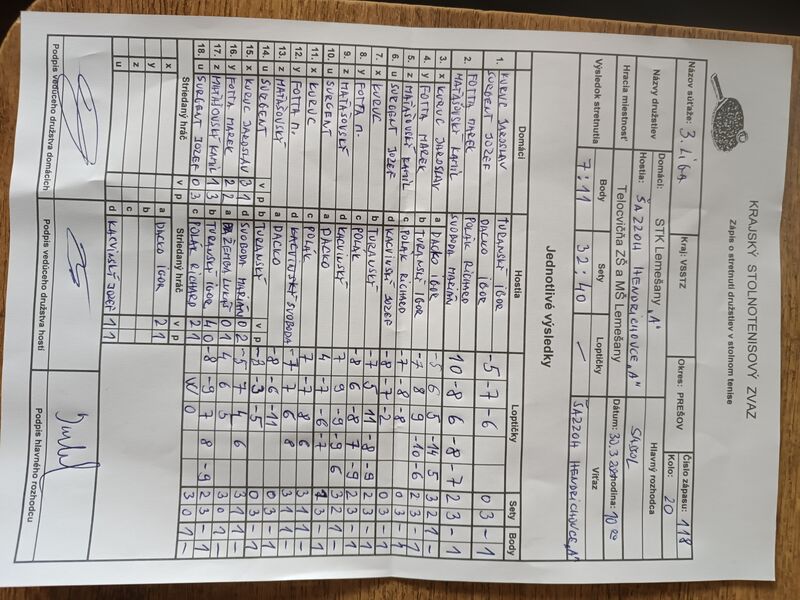 KRAJSKÝ STOLNOTENISOVÝ ZVÄZ
Zápis o stretnutí družstiev v stolnom tenise
Názov súťaže: 3. LIGA Kraj: VSSTZ Okres: PREŠOV Číslo zápasu: 118
Kolo: 20
Názvy družstiev Domáci: STK Lemešany "A" Hlavný rozhodca
Hostia: ŠAZZOH HENDRICHOVCE "A" SABOL
Hracia miestnosť Telocvičňa ZŠ a MŠ Lemešany Dátum: 30.3 hodina: 10 00
Výsledok stretnutia Body 7:11 Sety 32:40 Loptičky Víťaz ŠAZZOH HENDRICHOVCE "A"
Jednotlivé výsledky
Domáci Hostia Loptičky Sety Body
1. KURUC JAROSLAV TURANSKÝ IGOR
SURGENT JOZEF DACKO IGOR -5 -7 -6 0 3 - 1
2. FOTTA MAREK POLÁK RICHARD
MATÁŠOVSKÝ KAMIL SVOBODA MARIÁN 10 -8 6 -8 -7 2 3 - 1
3. x KURUC JAROSLAV a DACKO IGOR -5 6 5 -14 5 3 2 1 -
4. y FOTTA MAREK b TURANSKÝ IGOR -7 8 9 -10 -6 2 3 - 1
5. z MATÁŠOVSKÝ KAMIL c POLÁK RICHARD -7 -8 -8 0 3 - 1
6. u SURGENT JOZEF d KACVINSKÝ JOZEF -8 -7 -2 0 3 - 1
7. x KURUC b TURANSKÝ -7 5 11 -8 -9 2 3 - 1
8. y FOTTA M. c POLÁK 8 6 -8 7 -9 2 3 - 1
9. z MATÁŠOVSKÝ d KACVINSKÝ 7 9 -9 -9 6 3 2 1 -
10. u SURGENT a DACKO 4 -7 -6 -7 1 3 - 1
11. x KURUC c POLÁK 7 -7 8 6 3 1 1 -
12. y FOTTA M. d KACVINSKÝ SVOBODA -7 7 6 8 3 1 1 -
13. z MATÁŠOVSKÝ a DACKO -8 -6 -11 0 3 - 1
14. u SURGENT v p b TURANSKÝ v p -3 -3 -5 0 3 - 1
15. x KURUC JAROSLAV 3 1 d SVOBODA MARIÁN 0 2 -5 7 4 6 3 1 1 -
16. y FOTTA MAREK 2 2 a ŽEMBA LUKÁŠ 0 1 4 6 5 3 0 1 -
17. z MATÁŠOVSKÝ KAMIL 1 3 b TURANSKÝ IGOR 4 0 -8 -9 7 8 -9 2 3 - 1
18. u SURGENT JOZEF 0 3 c POLÁK RICHARD 2 1 W 0 3 0 1 -
Striedaný hráč v p Striedaný hráč v p
x a DACKO IGOR 2 1
y b
z c
u d KACVINSKÝ JOZEF 1 1
Podpis vedúceho družstva domácich Podpis vedúceho družstva hostí Podpis hlavného rozhodcu